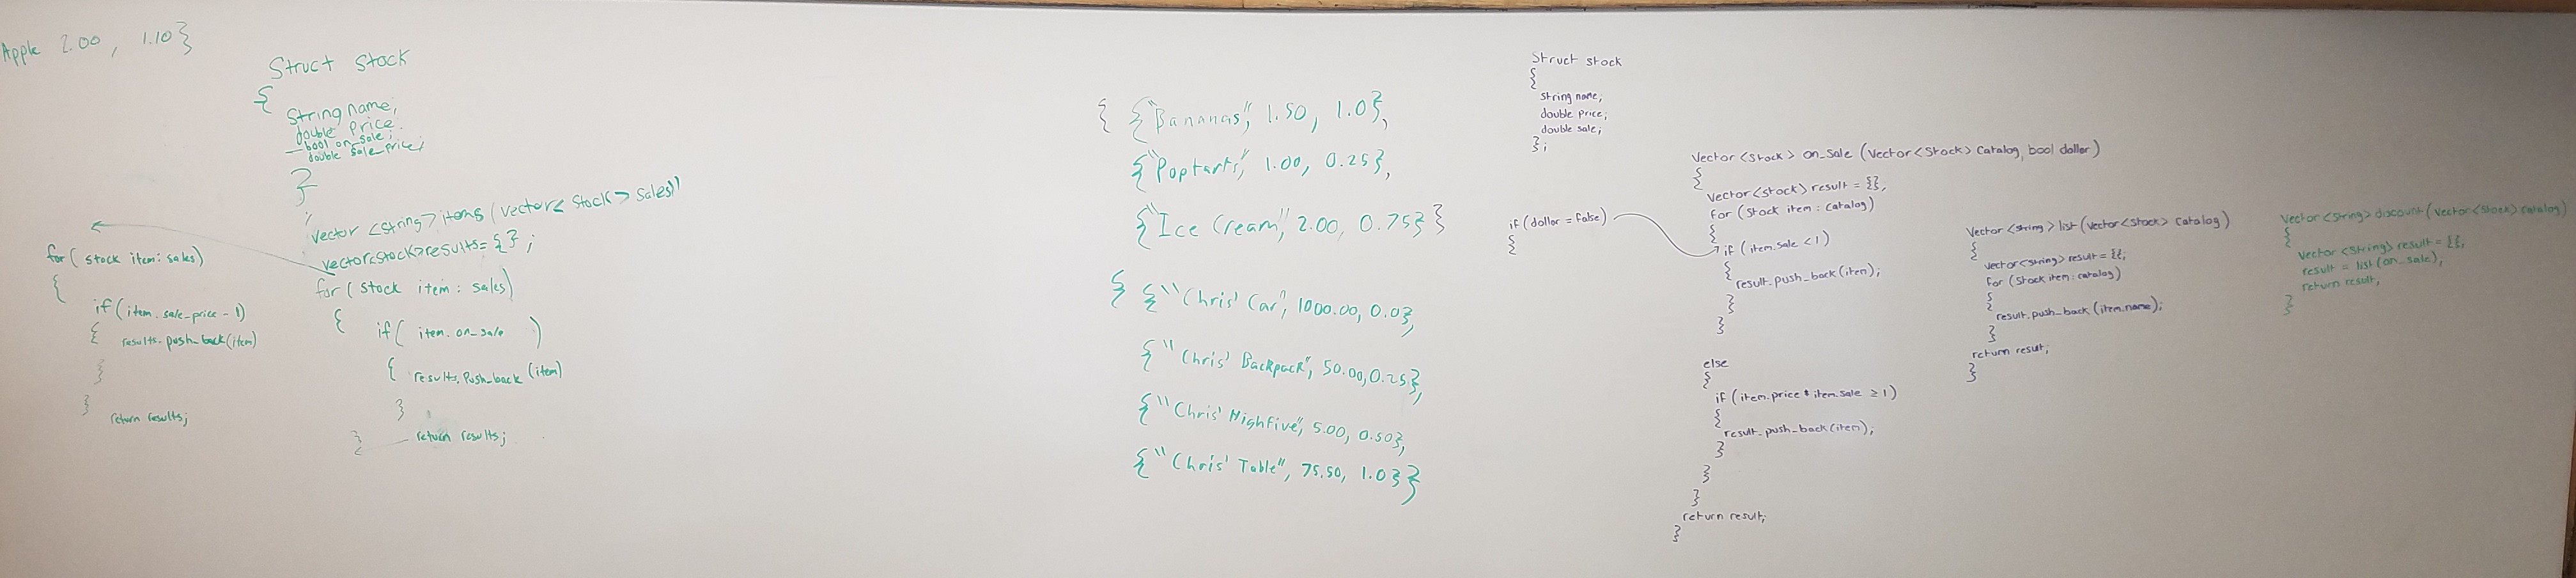 Apple 2.00 , 1.10}
Struct stock
{
String name,
double price
bool on_sale;
double sale_price;
}
;
vector <string> items (vector< stock> sales)
vector<stock>results= {} ;
for ( stock item : sales)
{
if ( item. on_sale )
{
results. push_back (item)
}
return results;
}
for ( stock item: sales)
{
if (item. sale_price - 1)
{
results. push_back(item)
}
}
return results;
{ {"Bananas", 1.50, 1.0},
{"Poptarts", 1.00, 0.25},
{"Ice Cream", 2.00, 0.75} }
{ {"Chris' Car", 1000.00, 0.0},
{"Chris' Backpack", 50.00, 0.25},
{"Chris' Highfive", 5.00, 0.50},
{"Chris' Table", 75.50, 1.0} }
Struct stock
{
string name;
double price;
double sale;
};
Vector <stock> on_sale (Vector<Stock> Catalog, bool doller)
{
Vector<stock> result = {};
for (Stock item : Catalog)
{
if (dollar = false)
{
if (item.sale <1)
{
result.push_back(item);
}
}
else
{
if (item.price * item.sale ≥ 1)
{
result.push_back(item);
}
}
}
return result;
}
Vector <string> list (vector<stock> catalog)
{
vector<string> result = {};
for (Stock item : catalog)
{
result.push_back (item.name);
}
return result;
}
Vector <string> discount (Vector<Stock> catalog)
{
Vector <string> result = {};
result = list (on_sale);
return result;
}